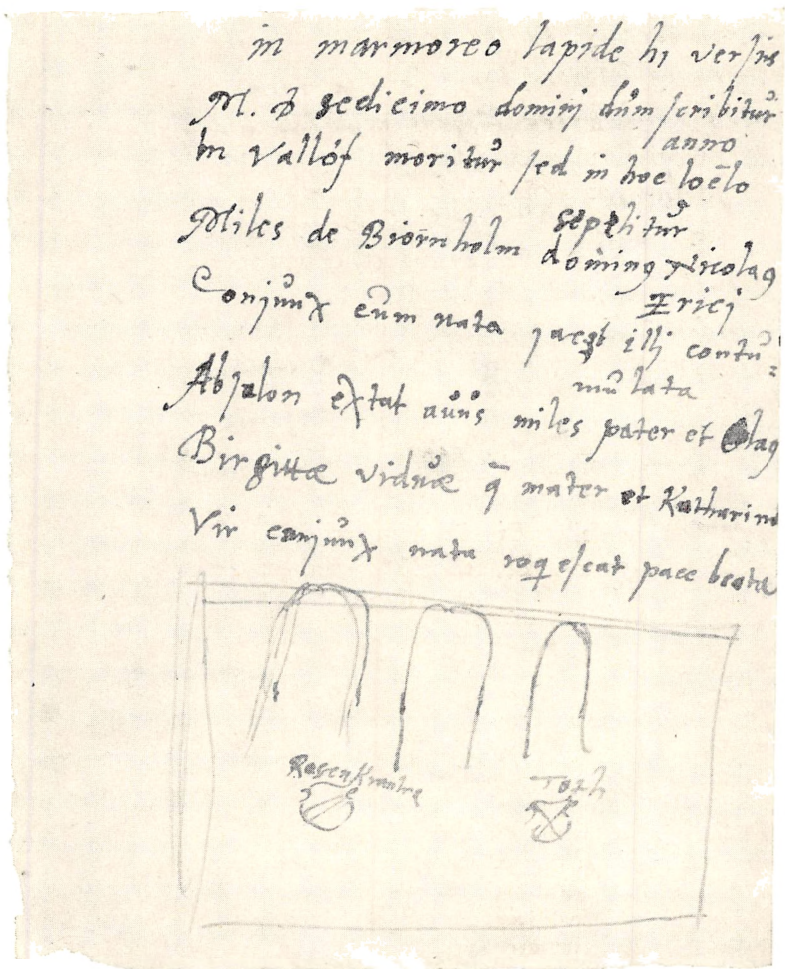 in marmoreo lapide hi versus
M. D sedicimo domini dum scribitur
anno
In Vallóf moritur sed in hoc loc̄lo
sepelitur
Miles de Biörnholm doming Nicolag
Erici
Conjunx cum nata jacet illi contu=
mulata
Absalon extat auus miles pater et Olag
Birgittæ viduæ q̄ mater et Katharinæ
Vir conjunx nata roqescat pace beata
Rosenkrantz
Toth